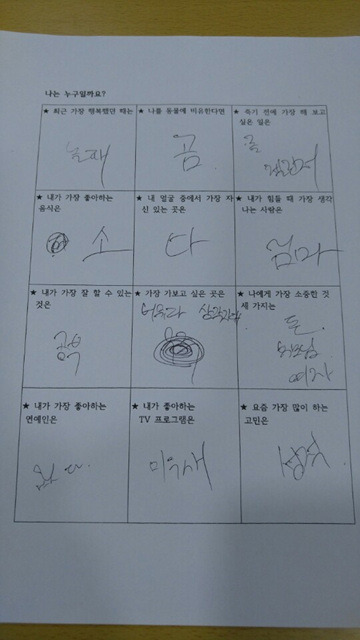 나는 누구일까요?
★ 최근 가장 행복했던 때는
놀 때
★ 나를 동물에 비유한다면
곰
★ 죽기 전에 가장 해 보고
싶은 일은
★ 내가 가장 좋아하는
음식은
소
★ 내 얼굴 중에서 가장 자
신 있는 곳은
다
★ 내가 힘들 때 가장 생각
나는 사람은
엄마
★ 내가 가장 잘 할 수 있는
것은
★ 가장 가보고 싶은 곳은
★ 나에게 가장 소중한 것
세 가지는
돈
부모님
여자
★ 내가 가장 좋아하는
연예인은
★ 내가 좋아하는
TV 프로그램은
미우새
★ 요즘 가장 많이 하는
고민은
성적